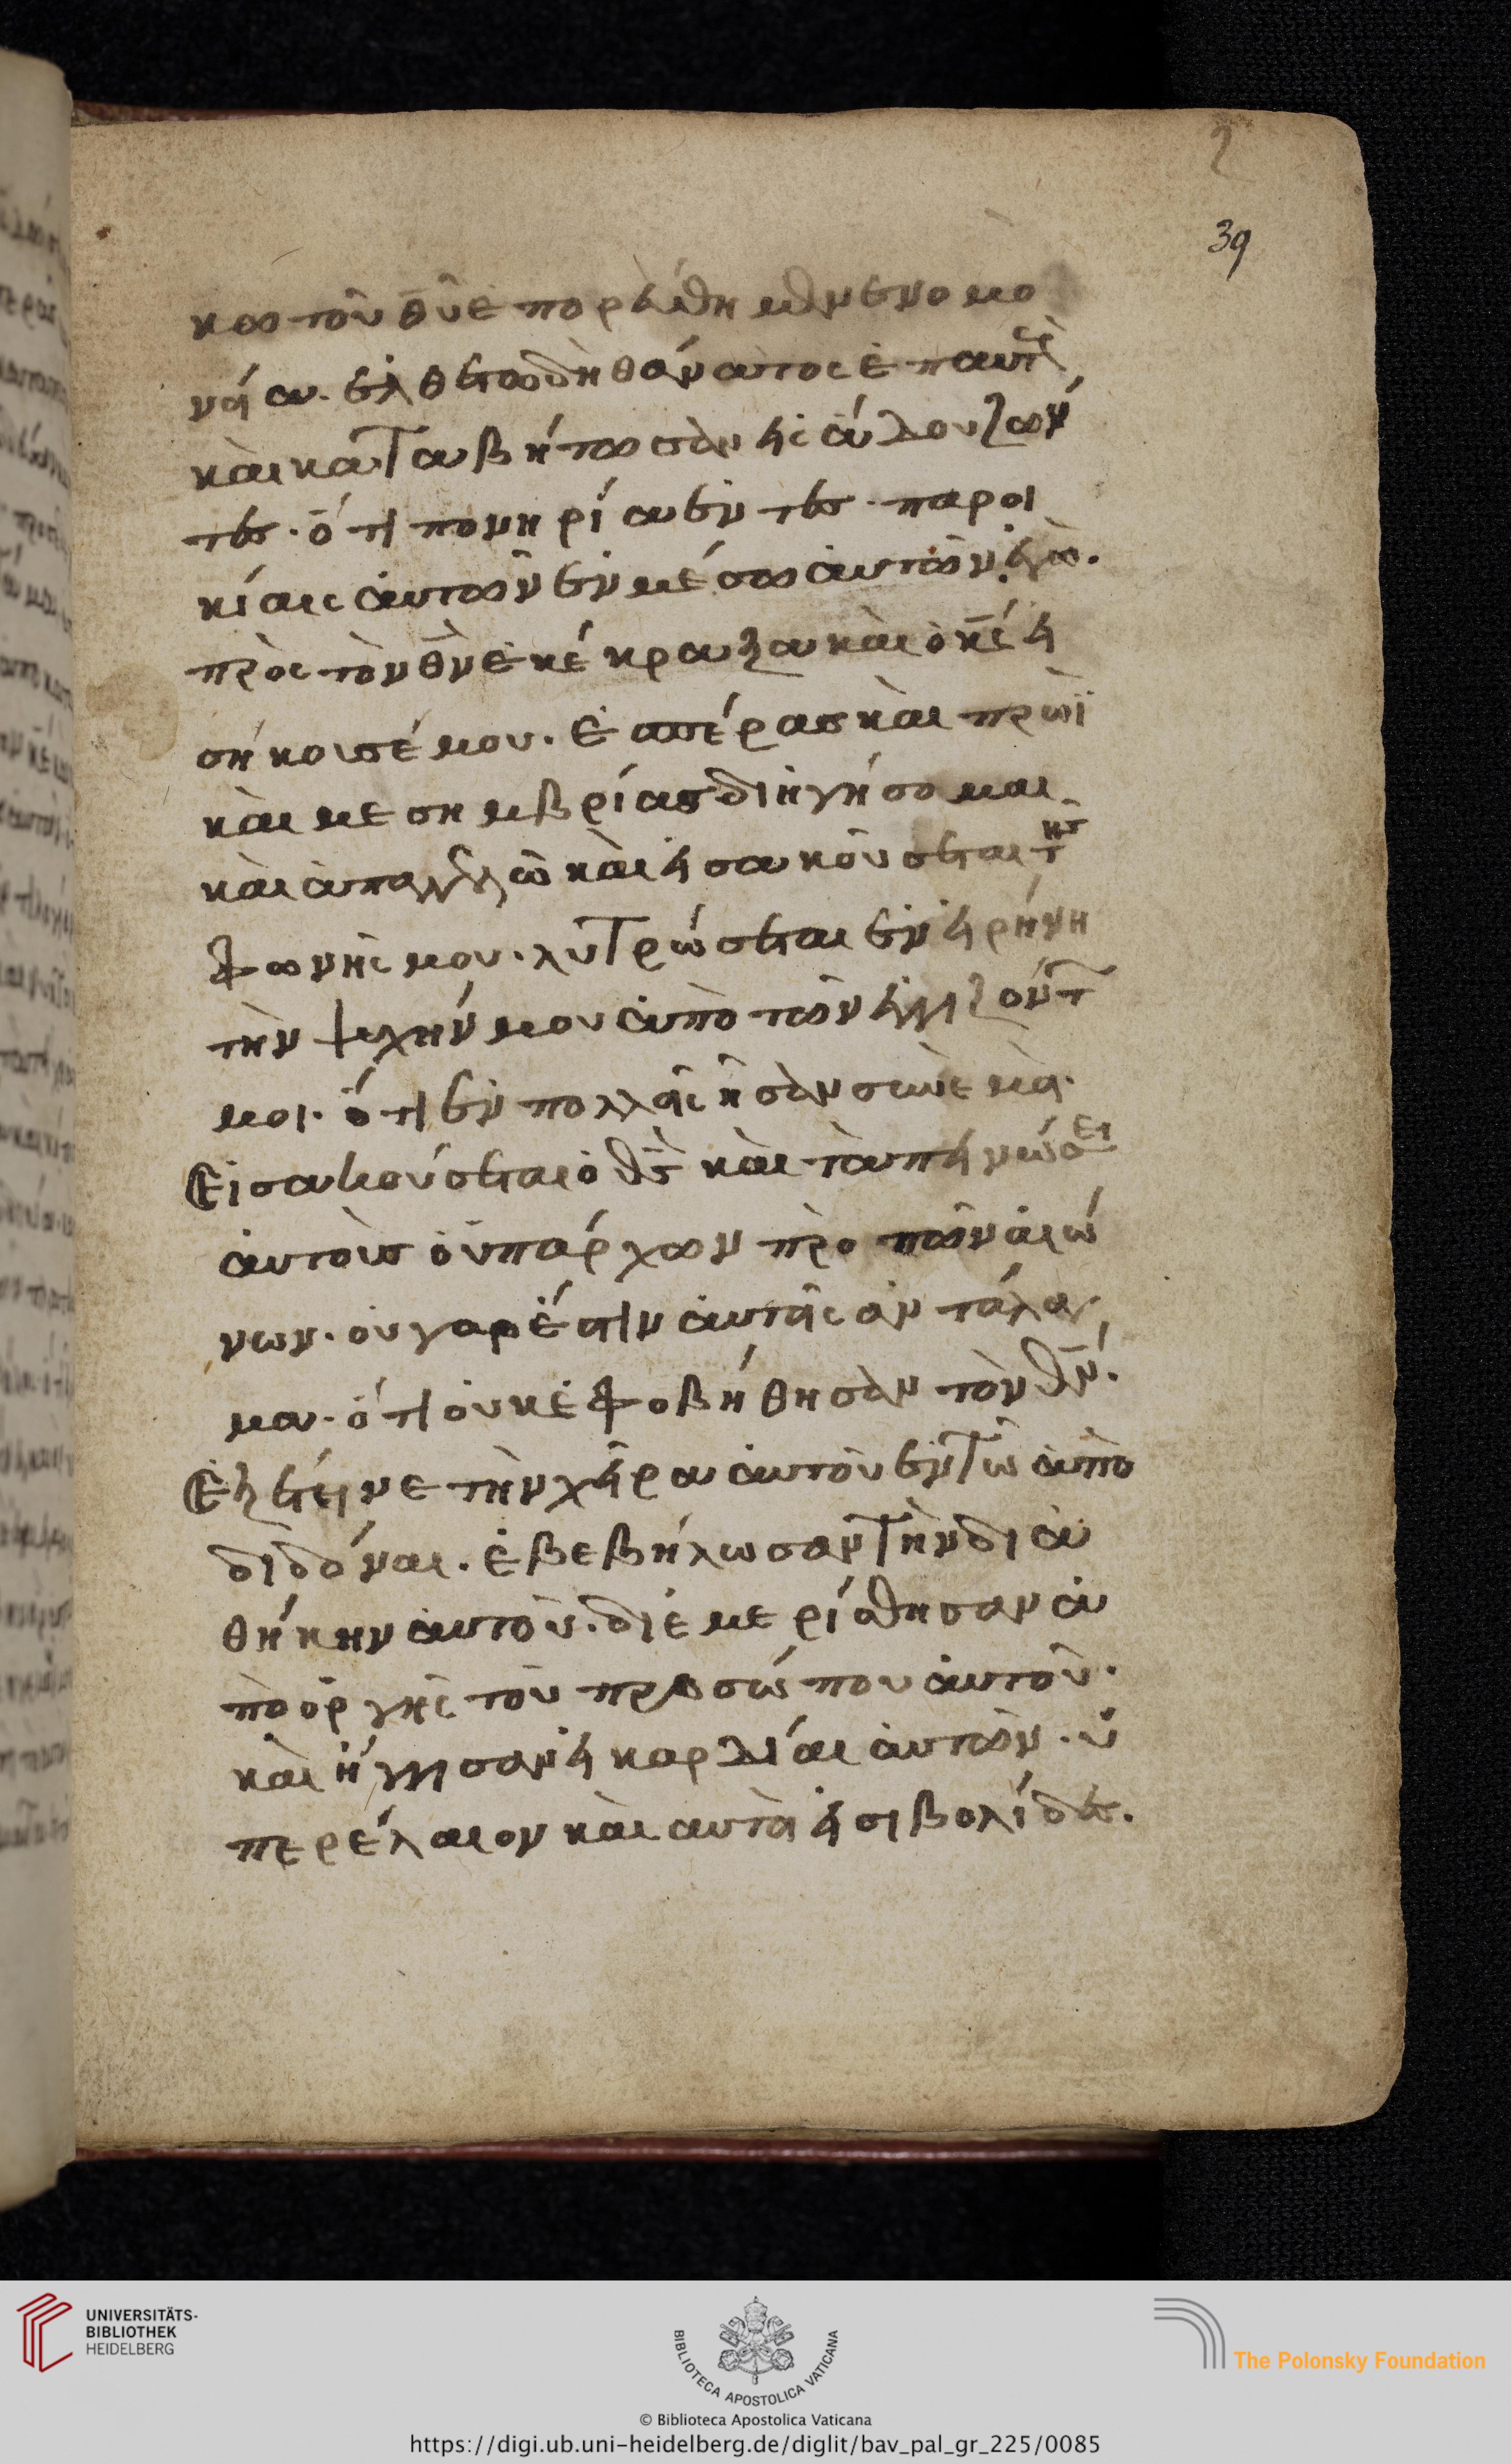 39
κω τοῦ θῦ ἐπορεύθημεν ἐν ὁμο
νοία. ἐλθέτω δὴ θάνατος ἐπ αυτοὺς
καὶ καταβήτωσαν εἰς άδου ζων
τες. ότι πονηρία ἐν ταις παροι
κίαις ἀυτῶν ἐν μέσω ἀυτῶν. ἐγὼ
πρὸς τὸν θν̄ ἐκέκραξα καὶ ὁ κς̄ εἰ
σήκουσέ μου. ἑσπέρας καὶ πρωῒ
καὶ μεσημβρίας διηγήσομαι
καὶ ἀπαγγελῶ καὶ εἰσακούσεται της
φωνῆς μου. λυτρώσεται ἐν εἰρήνη
τὴν ψυχήν μου ἀπὸ τῶν ἐγγιζόντων
μοι. ότι ἐν πολλοῖς ἦσαν σὺν ἐμοί.
Εἰσακούσεται ὁ θς̄ καὶ ταπεινώσει
ἀυτοὺς ὁ ὑπάρχων πρὸ τῶν ἀιώ
νων. ὀυ γαρ έστιν ἀυτοῖς ἀντάλαγ
μα. ότι ὀυκ ἐφοβήθησαν τὸν θν̄.
Ἐξέτεινε τὴν χεῖρα ἀυτοῦ ἐν τῶ ἀπο
διδόναι. ἐβεβήλωσαν τὴν δια
θήκην ἀυτοῦ. διεμερίσθησαν ἀ
πὸ ὀργῆς τοῦ προσώπου ἀυτοῦ.
καὶ ήγγισαν ἑι καρδίαι ἀυτῶν. ὑ
περ έλαιον καὶ αυτοὶ εἰσι βολίδες.
UNIVERSITÄTS-
BIBLIOTHEK
HEIDELBERG
BIBLIOTECA APOSTOLICA VATICANA
The Polonsky Foundation
© Biblioteca Apostolica Vaticana
https://digi.ub.uni-heidelberg.de/diglit/bav_pal_gr_225/0085